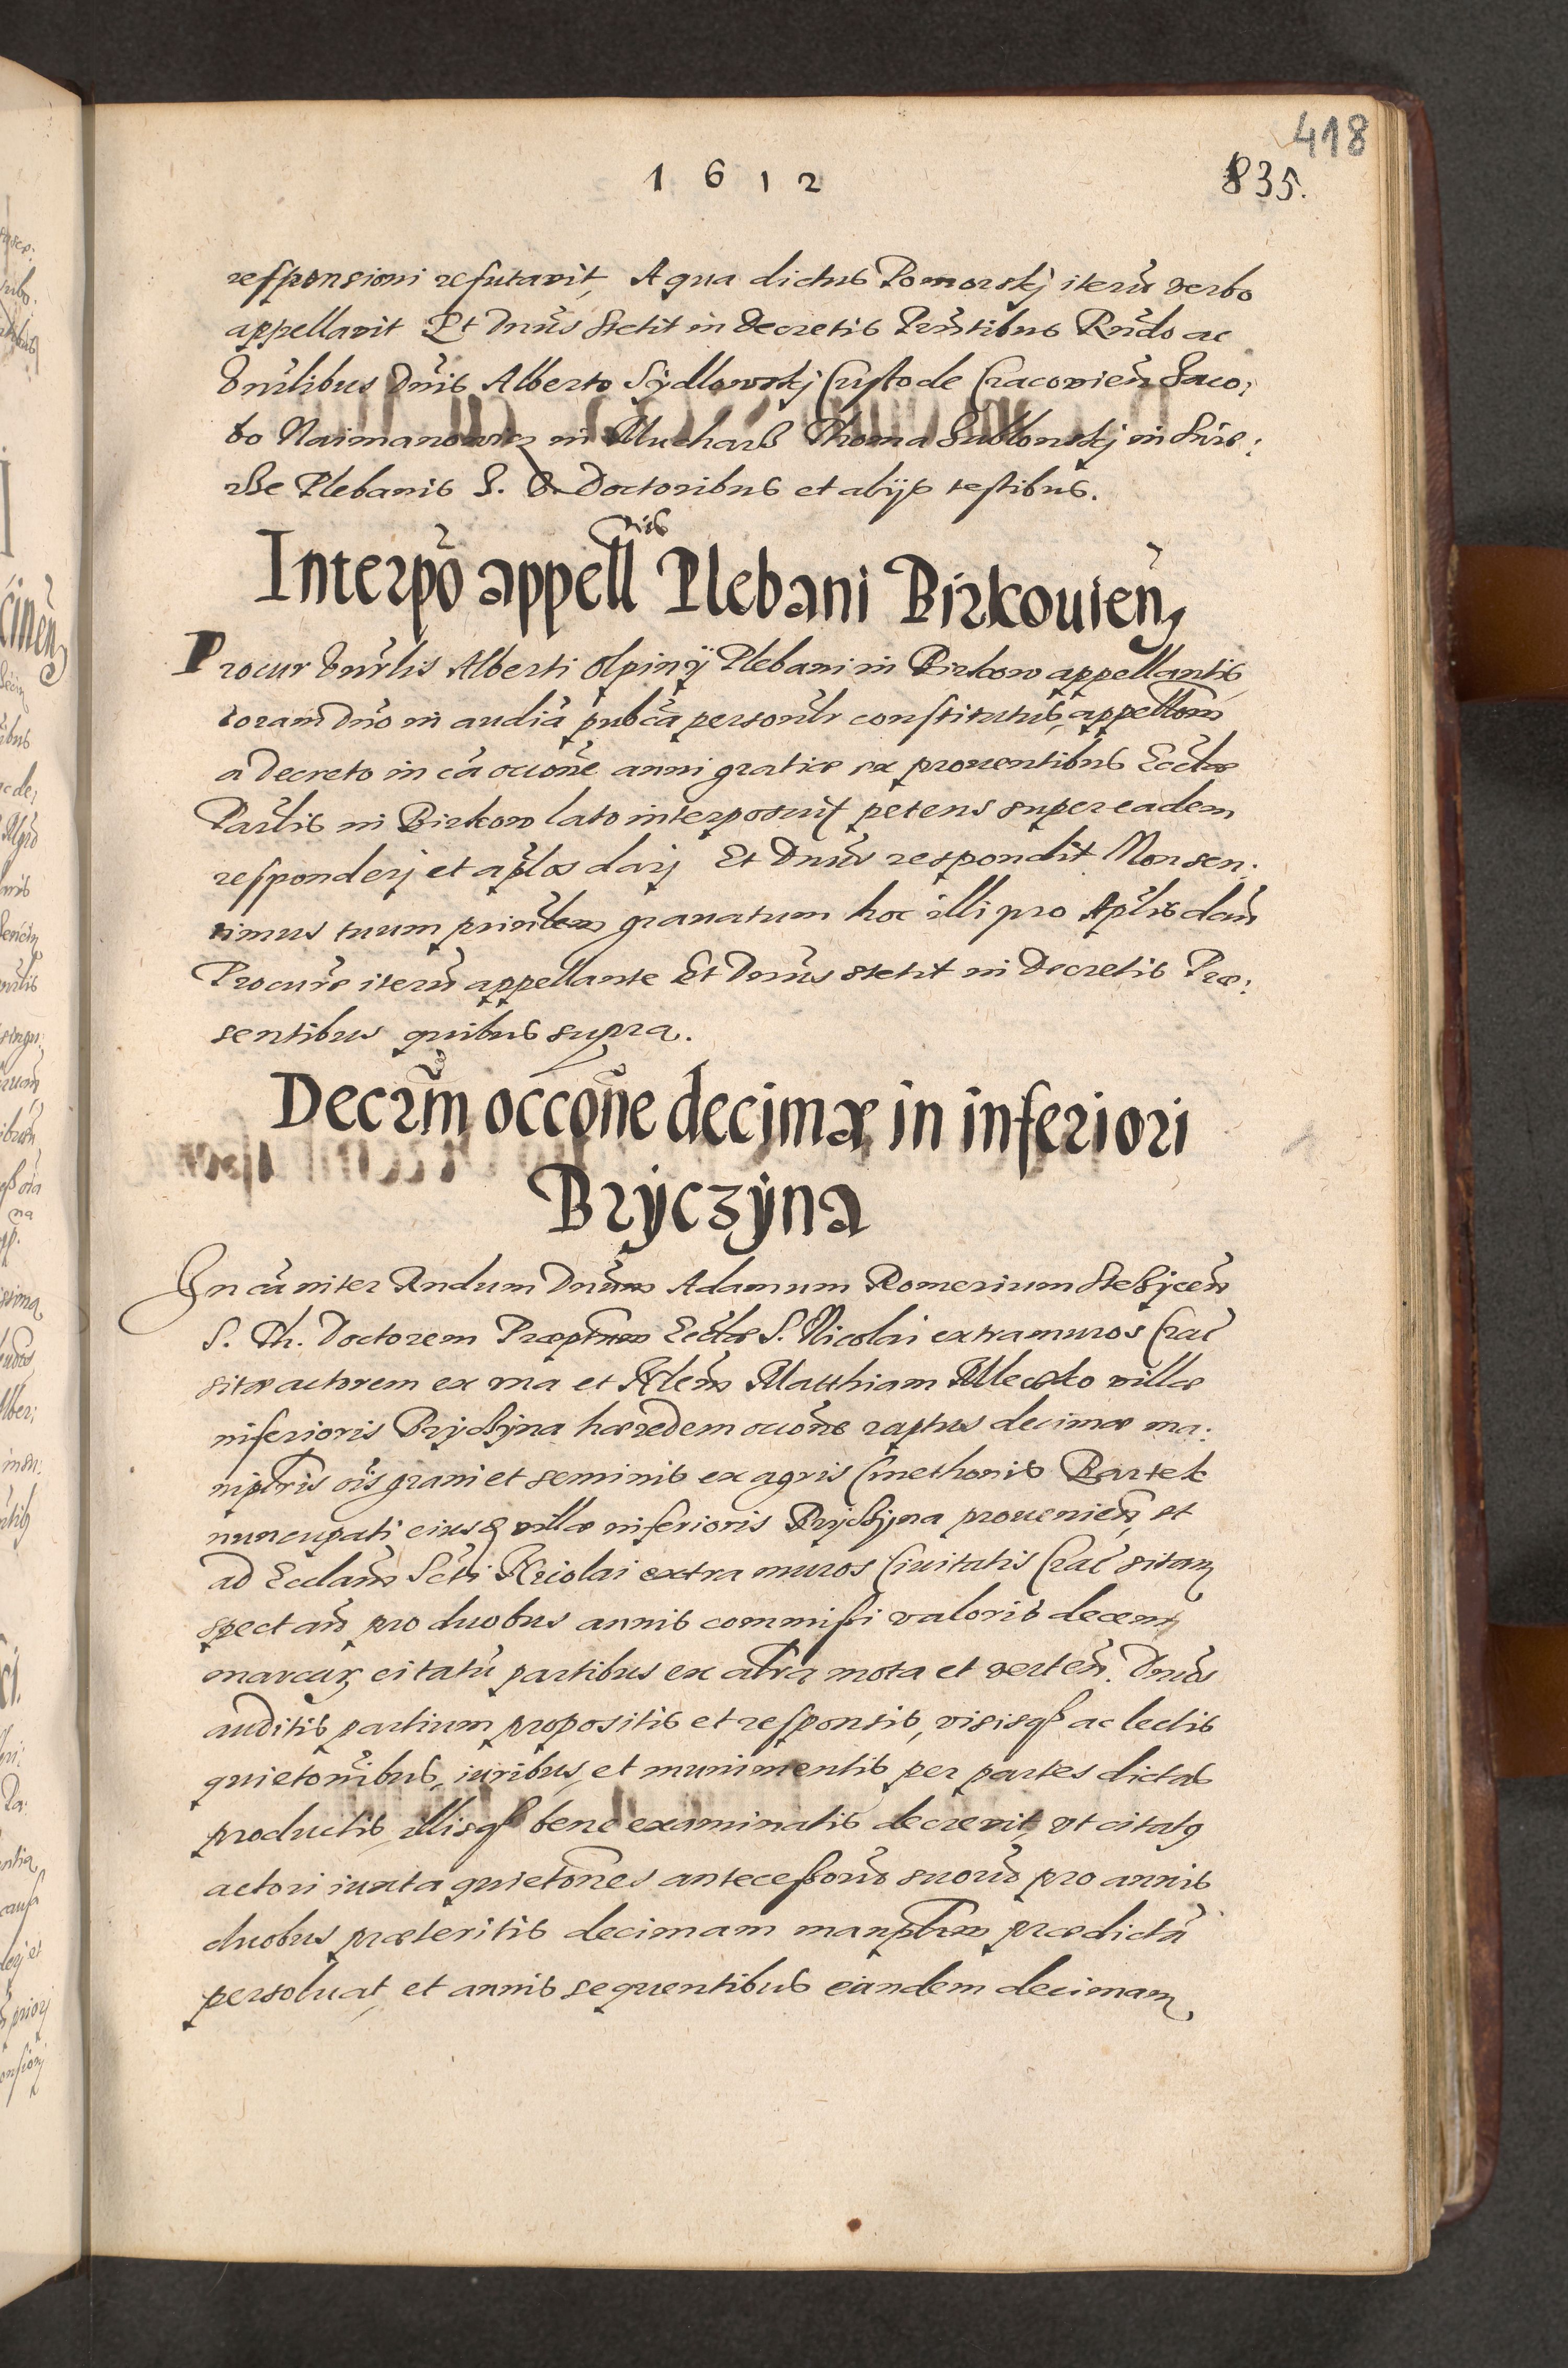 418
1612
835.
responsioni refutavit, A qua dictus Pomorskj iterū verbo
appellavit Et Dnūs stetit in Decretis Pn̄tibus Rndo ac
Vn̄rlibus Dn̄is Alberto Sydlowskj Custode Cracovien̄ Jaco:
bo Naimanowicz in Mucharz Thoma Jablonskj in
Plebanis S. Th. Doctoribus et alijs testibus.
Interpō appell nis Plebani Birkouien̄
Procur Vn̄rlis Alberti Olpinÿ Plebani in Birkow appellantis
coram Dn̄o in audiā pub̄ca person̄lr constitutus, appell̄om
a Decreto in cā occōne anni gratiæ ex prouentibus Eccl̄æ
Par̄lis in Birkow lato interposuit petens super eadem
responderj et ap̄los darj Et Dnūs respondit Non sen:
timus tuum prin̄lem grauatum hoc illi pro Ap̄lis dan̄
Procurē iterū appellante Et Dnūs stetit in Decretis Præ:
sentibus quibus supra.
Decrm̄ occōne decimæ in inferiori
Bryczÿna
In cā inter Rndum Dnūm Adamum Romerium Stęßycen̄
S. Th. Doctorem Præp̄tum Eccl̄æ S. Nicolai extra muros Crac̄
sitæ actorem ex vna et Matthiam villæ
inferioris Bryczyna hæredem occōne raptus decimæ ma:
nip̄lris oīs grani et seminis ex agris Cmethonis Bartek
nuncupati eiusq villæ inferioris Bryczyna prouenien̄, et
ad Eccl̄am S̄cti Nicolai extra muros Ciuitatis Crac̄ sitam
spectan̄ pro duobus annis commissi valoris decem
marcar, citatū partibus ex al̄tra mota et verten̄. Dnūs
auditis partium propositis et responsis, visisq ac lectis
quietōnibus, iuribus, et munimentis per partes dictas
productis, illisq bene examinatis decrevit, vt citatq
actori iuxta quietōnes antecessorū suorū pro annis
duobus præteritis decimam manip̄lrem prædictā
persoluat, et annis sequentibus eandem decimam